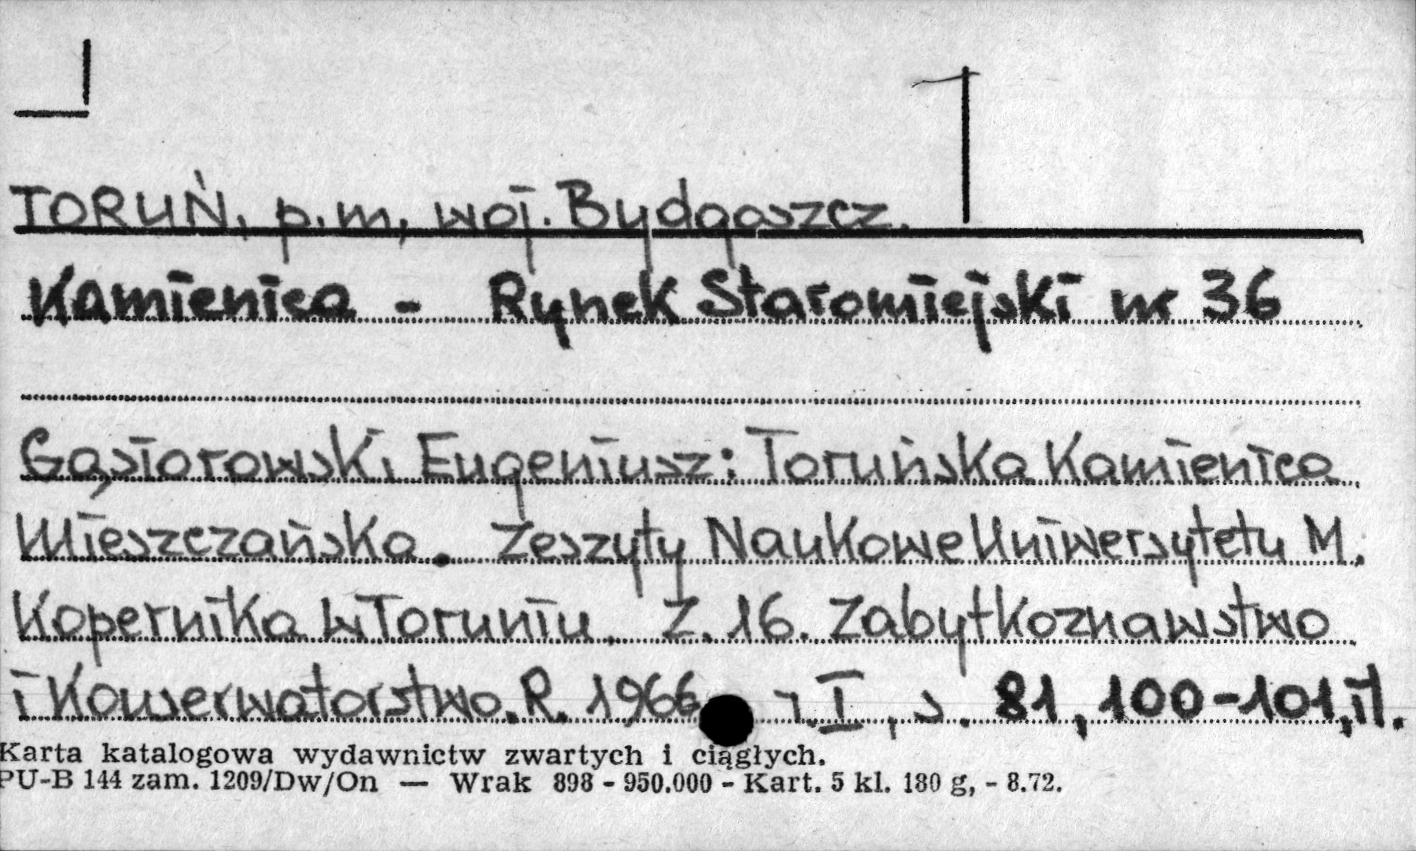 TORUŃ, p.m, woj. Bydgoszcz.
Kamienica - Rynek Staromiejski nr 36
Gąsiorowski Eugeniusz: Toruńska Kamienica
Mieszczańska. Zeszyty Naukowe Uniwersytetu M.
Kopernika w Toruniu, Z. 16. Zabytkoznawstwo
i Konserwatorstwo. R. 1966 T. I, s. 81, 100-101, il.
Karta katalogowa wydawnictw zwartych i ciągłych.
PU-B 144 zam. 1209/Dw/On — Wrak 898 - 950.000 - Kart. 5 kl. 180 g, - 8.72.